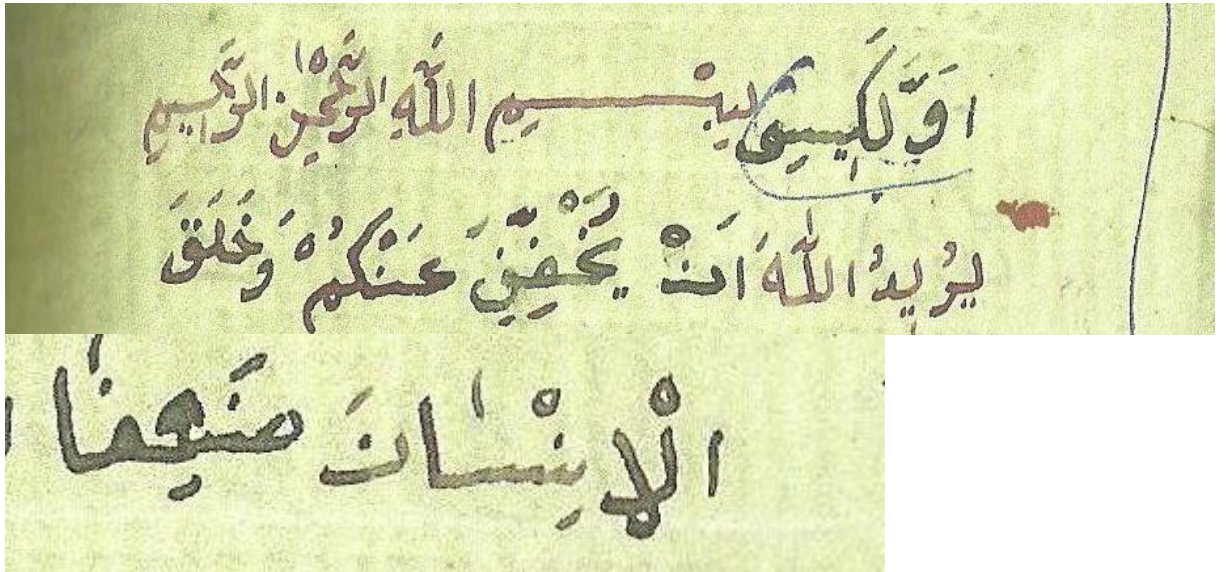 اَوَّلْكِيسِى بِسْــــــمِ اللّٰهِ الرَّحْمٰنِ الرَّحِيمِ
يُرِيدُ اللّٰهُ اَنْ يُخَفِّفَ عَنْكُمْ وَخُلِقَ
الْاِنْسَانَ ضَعِيفًا